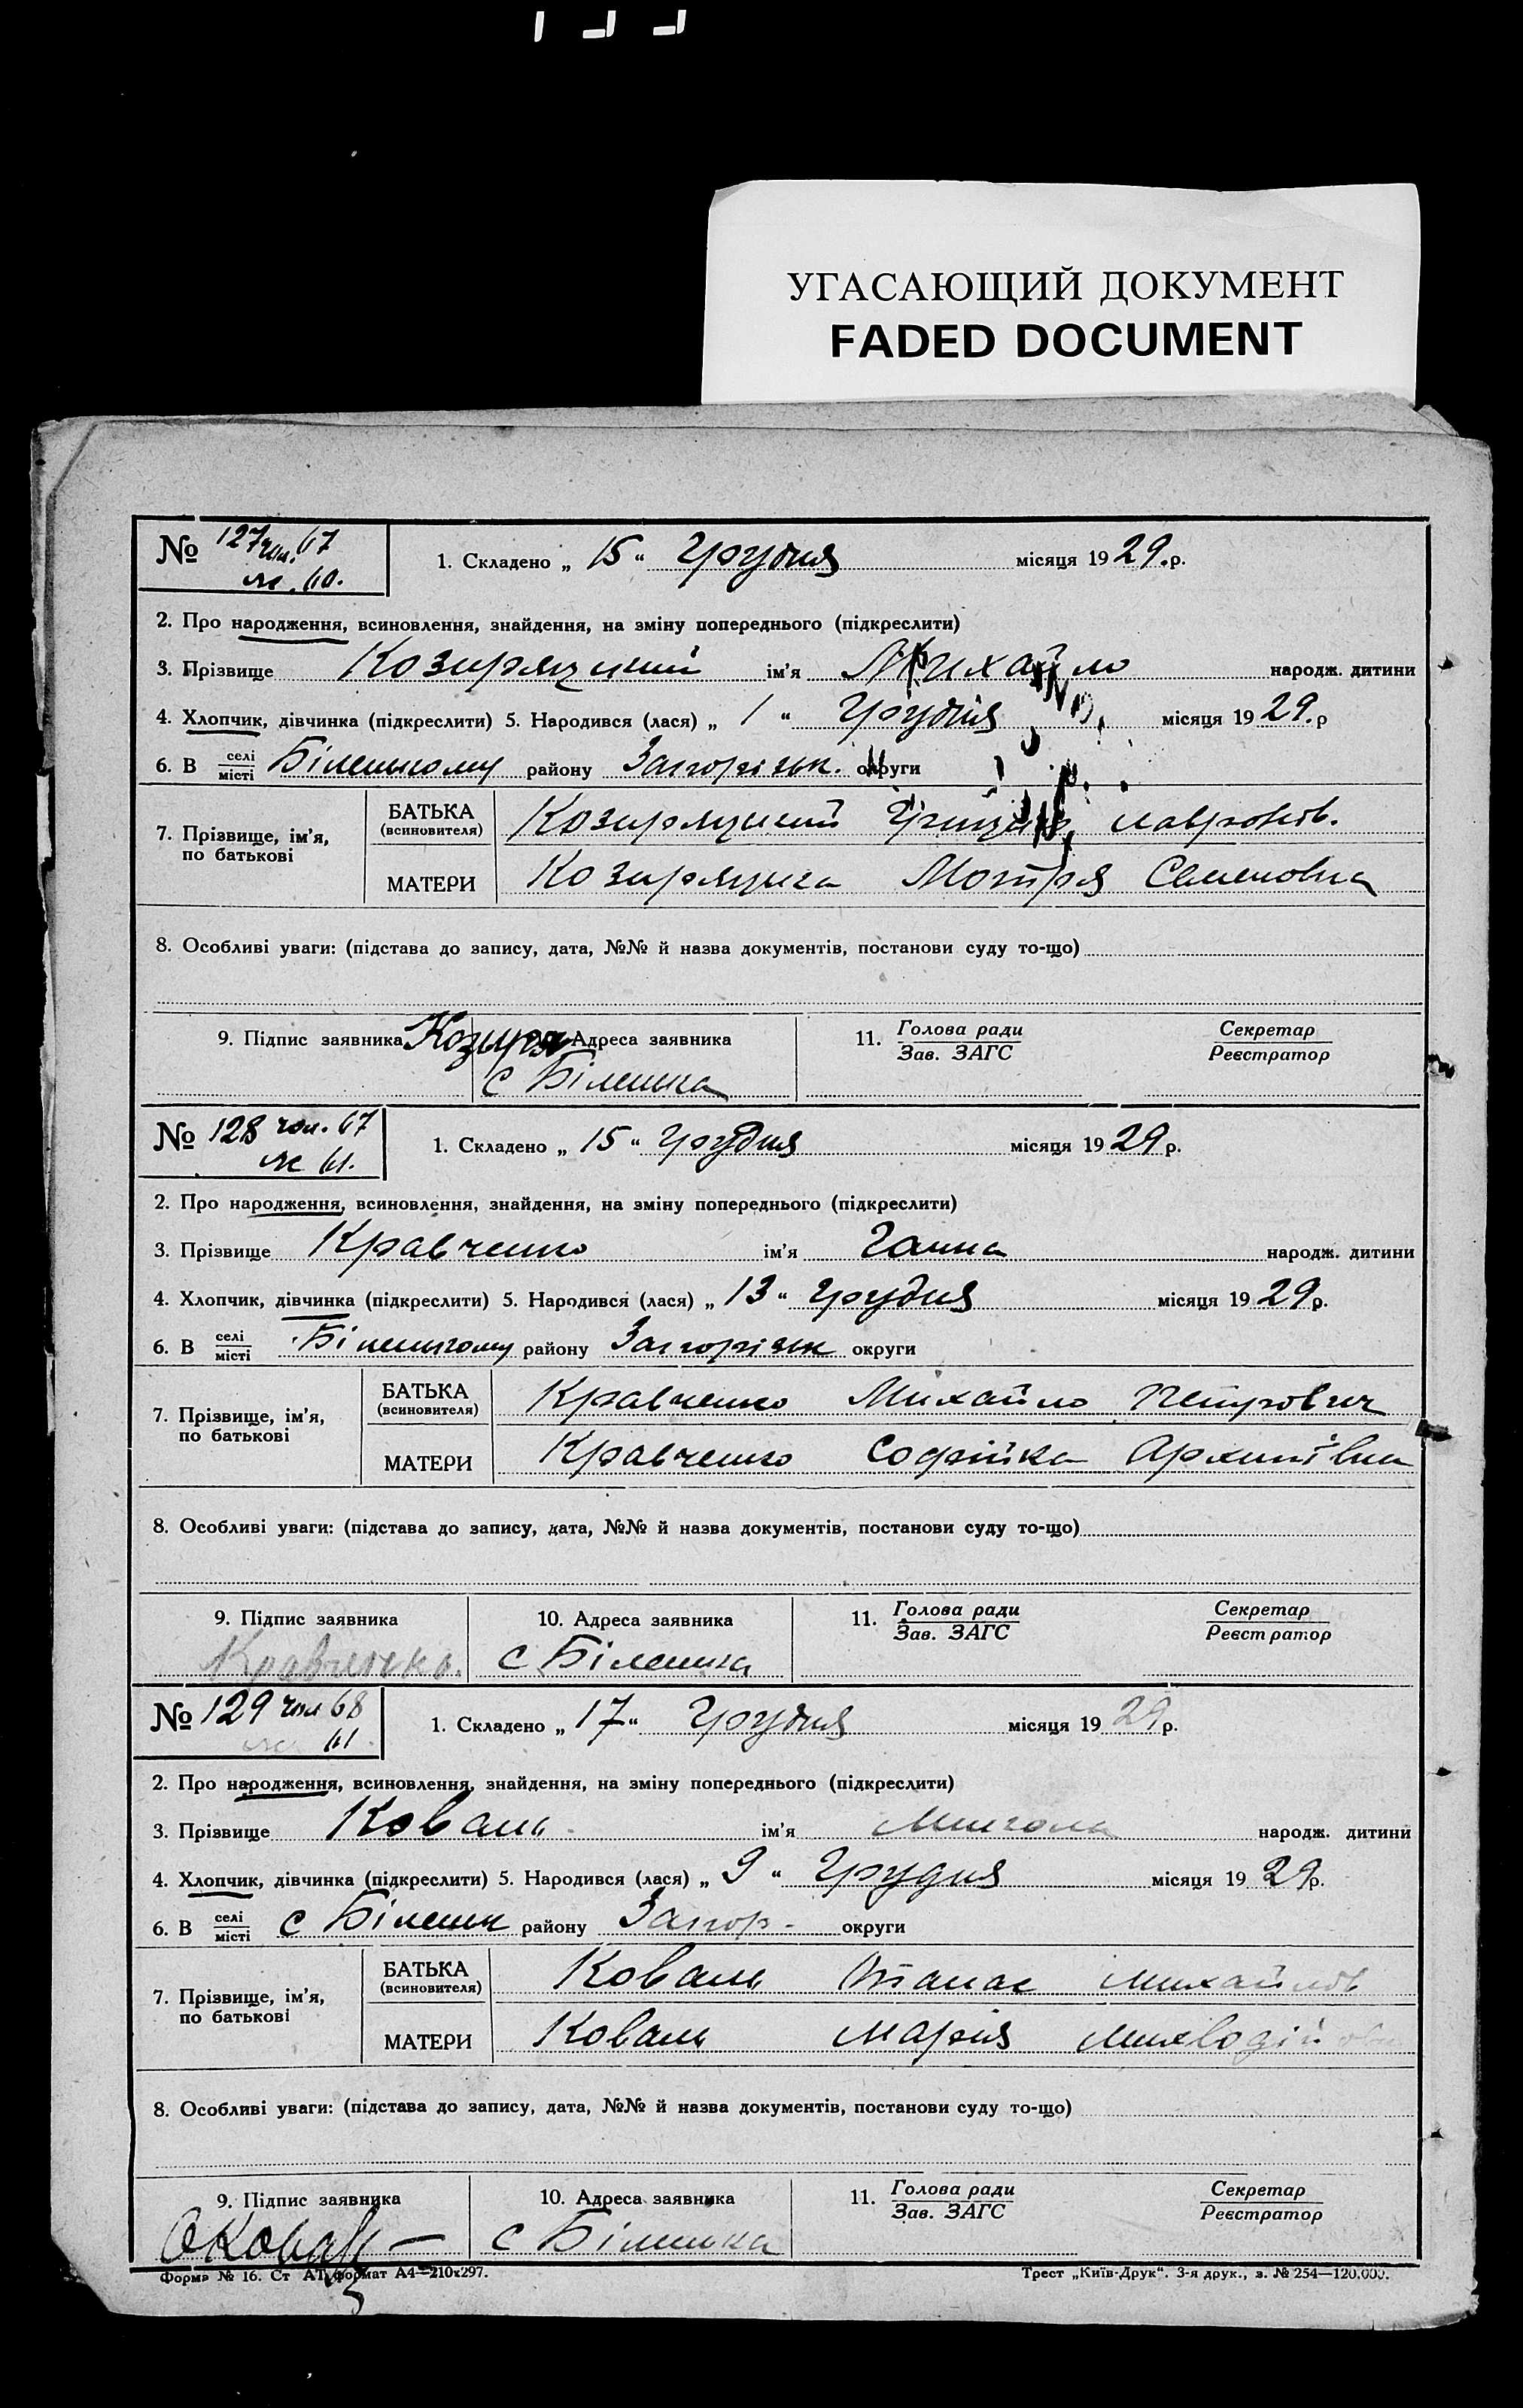 УГАСАЮЩИЙ ДОКУМЕНТ
FADED DOCUMENT
№ 127 чол. 67
ж. 60.
1. Складено „ 15 “ Грудня місяця 1929. р.
2. Про народження, всиновлення, знайдення, на зміну попереднього (підкреслити)
3. Прізвище ім'я Михайло народж. дитини
4. Хлопчик, дівчинка (підкреслити) 5. Народився (лася) „ 1 “ Грудня місяця 1929. р
6. В селі/місті Біленькому району Запорізьк. округи
7. Прізвище, ім'я, по батькові
БАТЬКА (всиновителя)
МАТЕРИ Мотря Семеновна
8. Особливі уваги: (підстава до запису, дата, №№ й назва документів, постанови суду то-що)
9. Підпис заявника
Адреса заявника
с Біленька
11. Голова ради
Зав. ЗАГС
Секретар
Реєстратор
№ 128 чол. 67
ж 61.
1. Складено „ 15 “ Грудня місяця 1929 р.
2. Про народження, всиновлення, знайдення, на зміну попереднього (підкреслити)
3. Прізвище Кравченко ім'я Ганна народж. дитини
4. Хлопчик, дівчинка (підкреслити) 5. Народився (лася) „ 13 “ Грудня місяця 1929 р.
6. В селі/місті Біленькому району Запорізьк округи
7. Прізвище, ім'я, по батькові
БАТЬКА (всиновителя) Кравченко Михайло Петрович
МАТЕРИ Кравченко Софійка Архипівна
8. Особливі уваги: (підстава до запису, дата, №№ й назва документів, постанови суду то-що)
9. Підпис заявника
Кравченко.
10. Адреса заявника
с Біленька
11. Голова ради
Зав. ЗАГС
Секретар
Реєстратор
№ 129 чол 68
ж 61.
1. Складено „ 17 “ Грудня місяця 1929 р.
2. Про народження, всиновлення, знайдення, на зміну попереднього (підкреслити)
3. Прізвище Коваль ім'я Микола народж. дитини
4. Хлопчик, дівчинка (підкреслити) 5. Народився (лася) „ 9 “ Грудня місяця 1929 р.
6. В селі/місті с Біленьк району Запор. округи
7. Прізвище, ім'я, по батькові
БАТЬКА (всиновителя) Коваль Опанас Михайлов
МАТЕРИ Коваль Марія
8. Особливі уваги: (підстава до запису, дата, №№ й назва документів, постанови суду то-що)
9. Підпис заявника
ОКоваль
10. Адреса заявника
с Біленька
11. Голова ради
Зав. ЗАГС
Секретар
Реєстратор
Форма № 16. Ст АТ формат А4—210х297.
Трест „Київ-Друк“. 3-я друк., з. № 254—120.000.